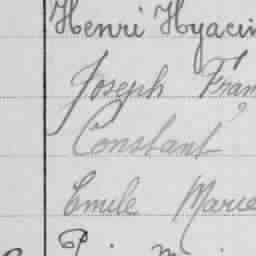 Henri Hyacin
Joseph Fran
Constant
Emile Marie